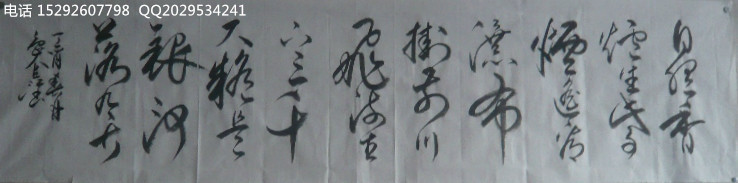 电话 15292607798 QQ2029534241
日照香
爐生紫
煙遙看
瀑布
掛前川
飛流直
下三千
尺疑是
銀河
落九天
丁酉春月